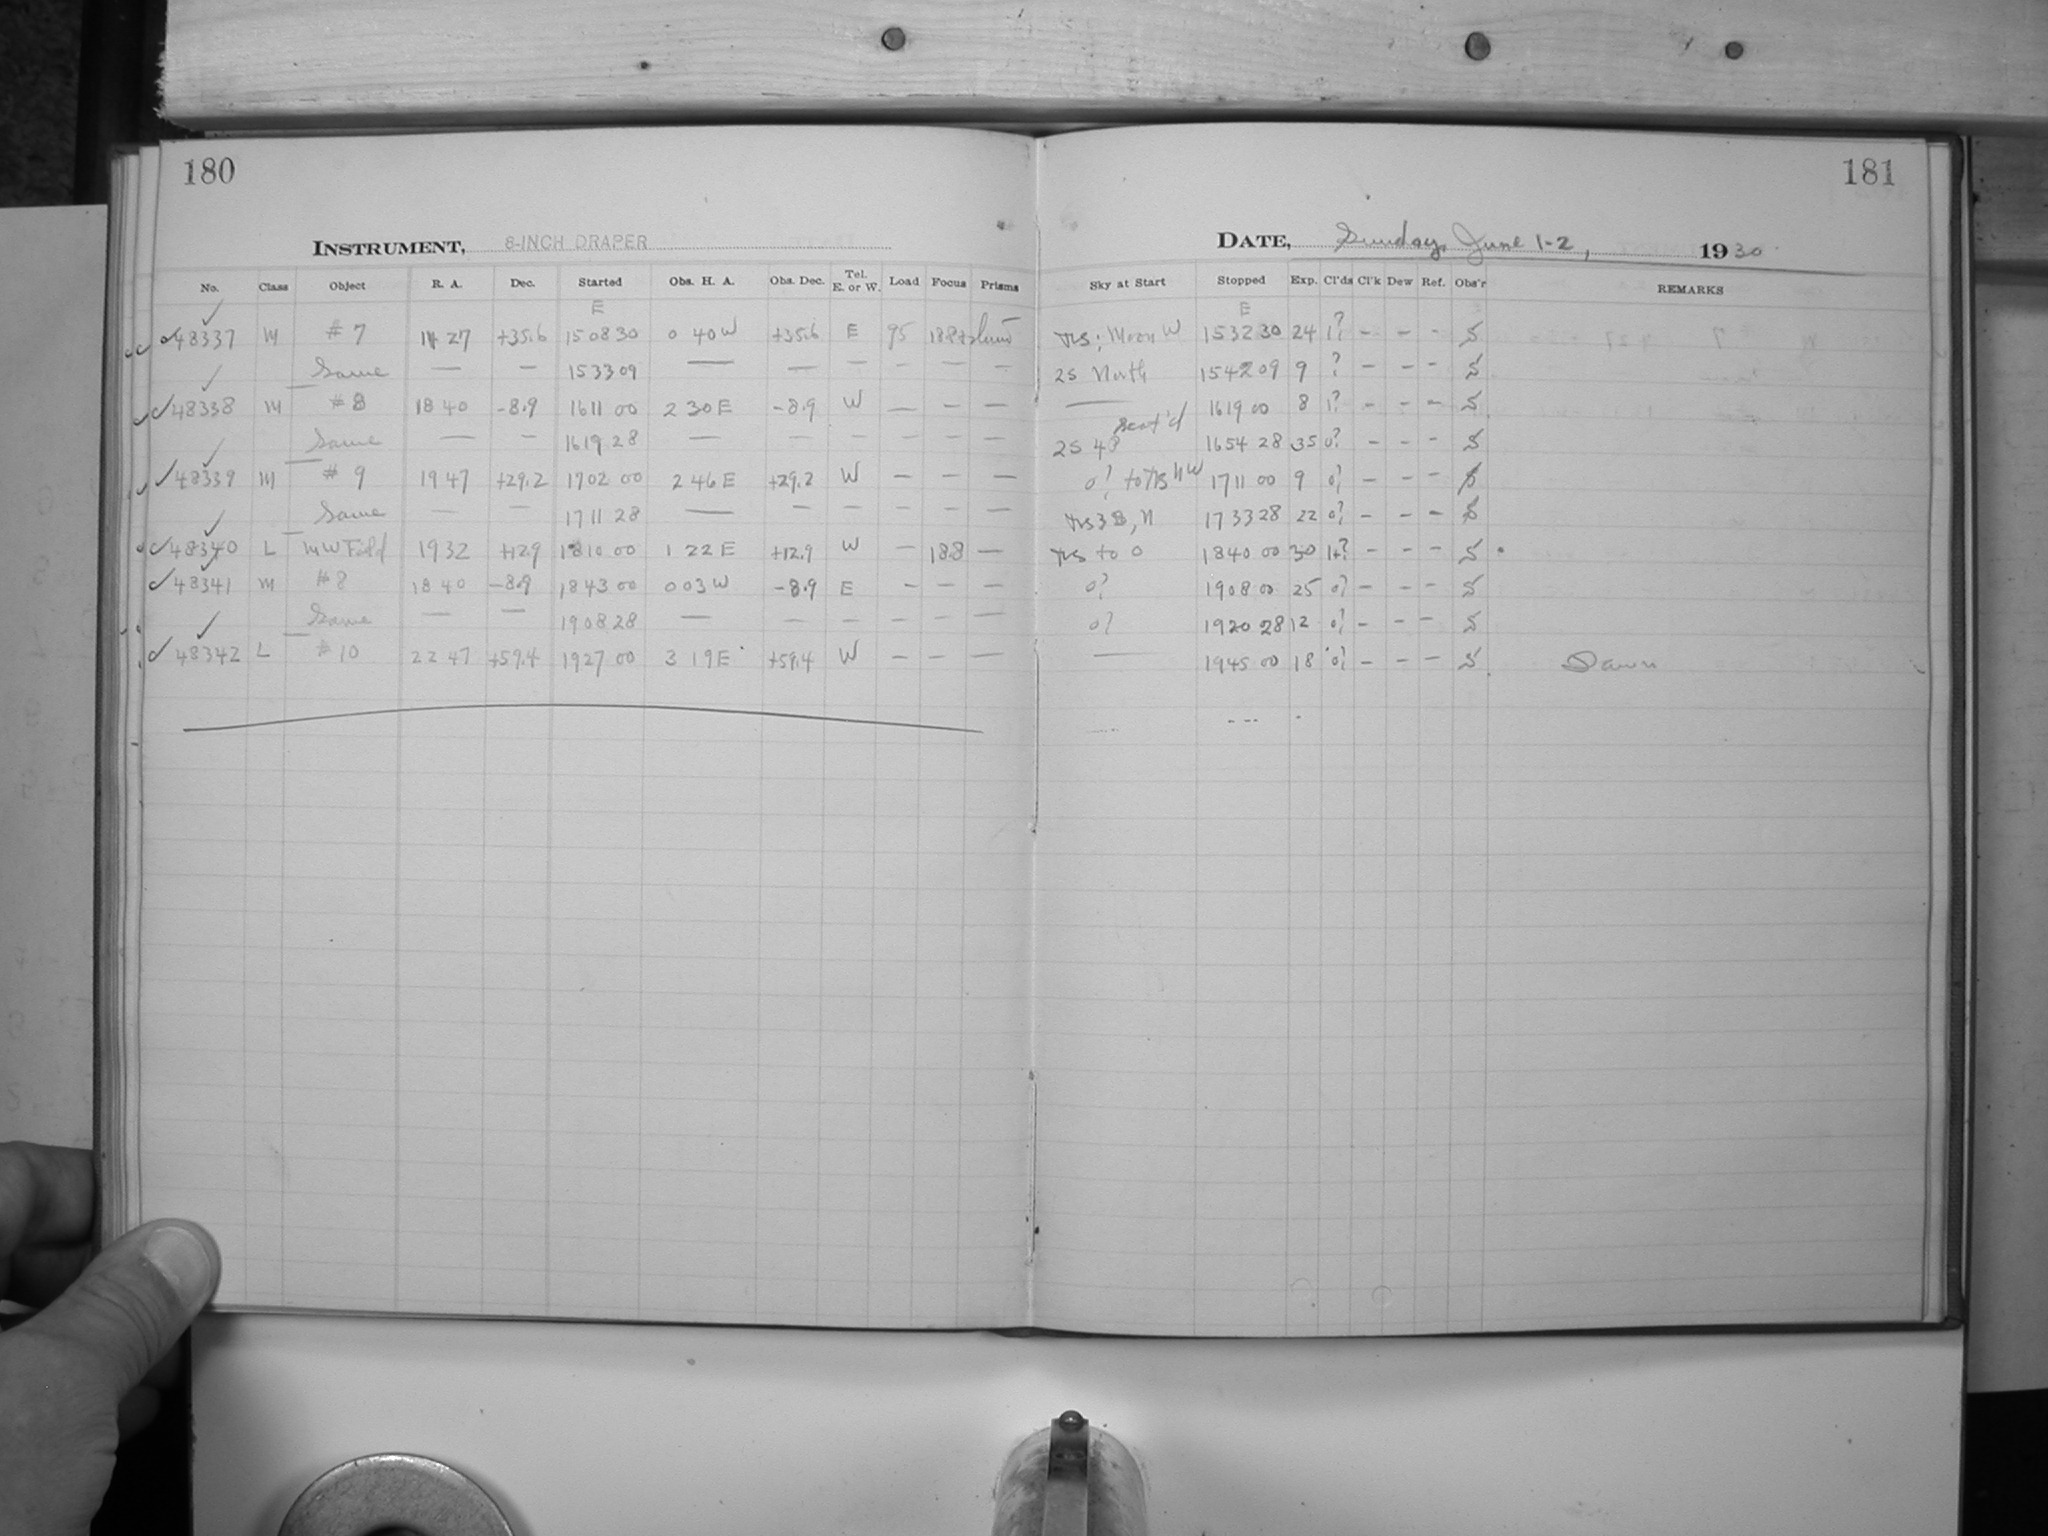 180
INSTRUMENT, 8-INCH DRAPER
No. Class Object R. A. Dec. Started Obs. H. A. Obs. Dec. Tel. E. or W. Load Focus Prisms
E
48337 M #7 14 27 +35.6 15 08 30 0 40 W +35.6 E 95
Same — — 15 33 09 — — — — — —
48338 M #8 18 40 -8.9 16 11 00 2 30 E -8.9 W — — —
Same — — 16 19 28 — — — — — —
48339 M #9 19 47 +29.2 17 02 00 2 46 E +29.2 W — — —
Same — — 17 11 28 — — — — — —
48340 L MW Field 19 32 +12.9 18 10 00 1 22 E +12.9 W — 18.8 —
48341 M #8 18 40 -8.9 18 43 00 0 03 W -8.9 E — — —
Same — — 19 08 28 — — — — — —
48342 L #10 22 47 +59.4 19 27 00 3 19 E +59.4 W — — —
181
DATE, Sunday, June 1-2, 1930
Sky at Start Stopped Exp. Cl'ds Cl'k Dew Ref. Obs'r REMARKS
E
Moon W 15 32 30 24 1? — — — S
2S North 15 42 09 9 ? — — — S
— 16 19 00 8 1? — — — S
scat'd
2S 16 54 28 35 0? — — — S
0? to NW 17 11 00 9 0? — — — S
17 33 28 22 0? — — — S
to 0 18 40 00 30 1+? — — — S
0? 19 08 00 25 0? — — — S
0? 19 20 28 12 0? — — — S
— 19 45 00 18 0? — — — S Dawn